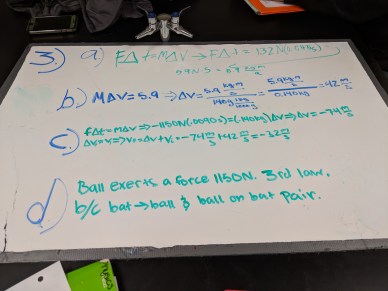 3) a) FΔt = MΔV → FΔt = 132N(.045s)
b.) MΔV = 5.9 → ΔV = 5.9 kg m/s / 140g = 5.9 kg m/s / 0.140kg = 42 m/s
c.) FΔt = MΔV → -1150N(.0090s) = (.140kg)ΔV → ΔV = -74 m/s
= -74 m/s + 42 m/s = -32 m/s
d) Ball exerts a force 1150N. 3rd law.
b/c bat → ball & ball on bat pair.